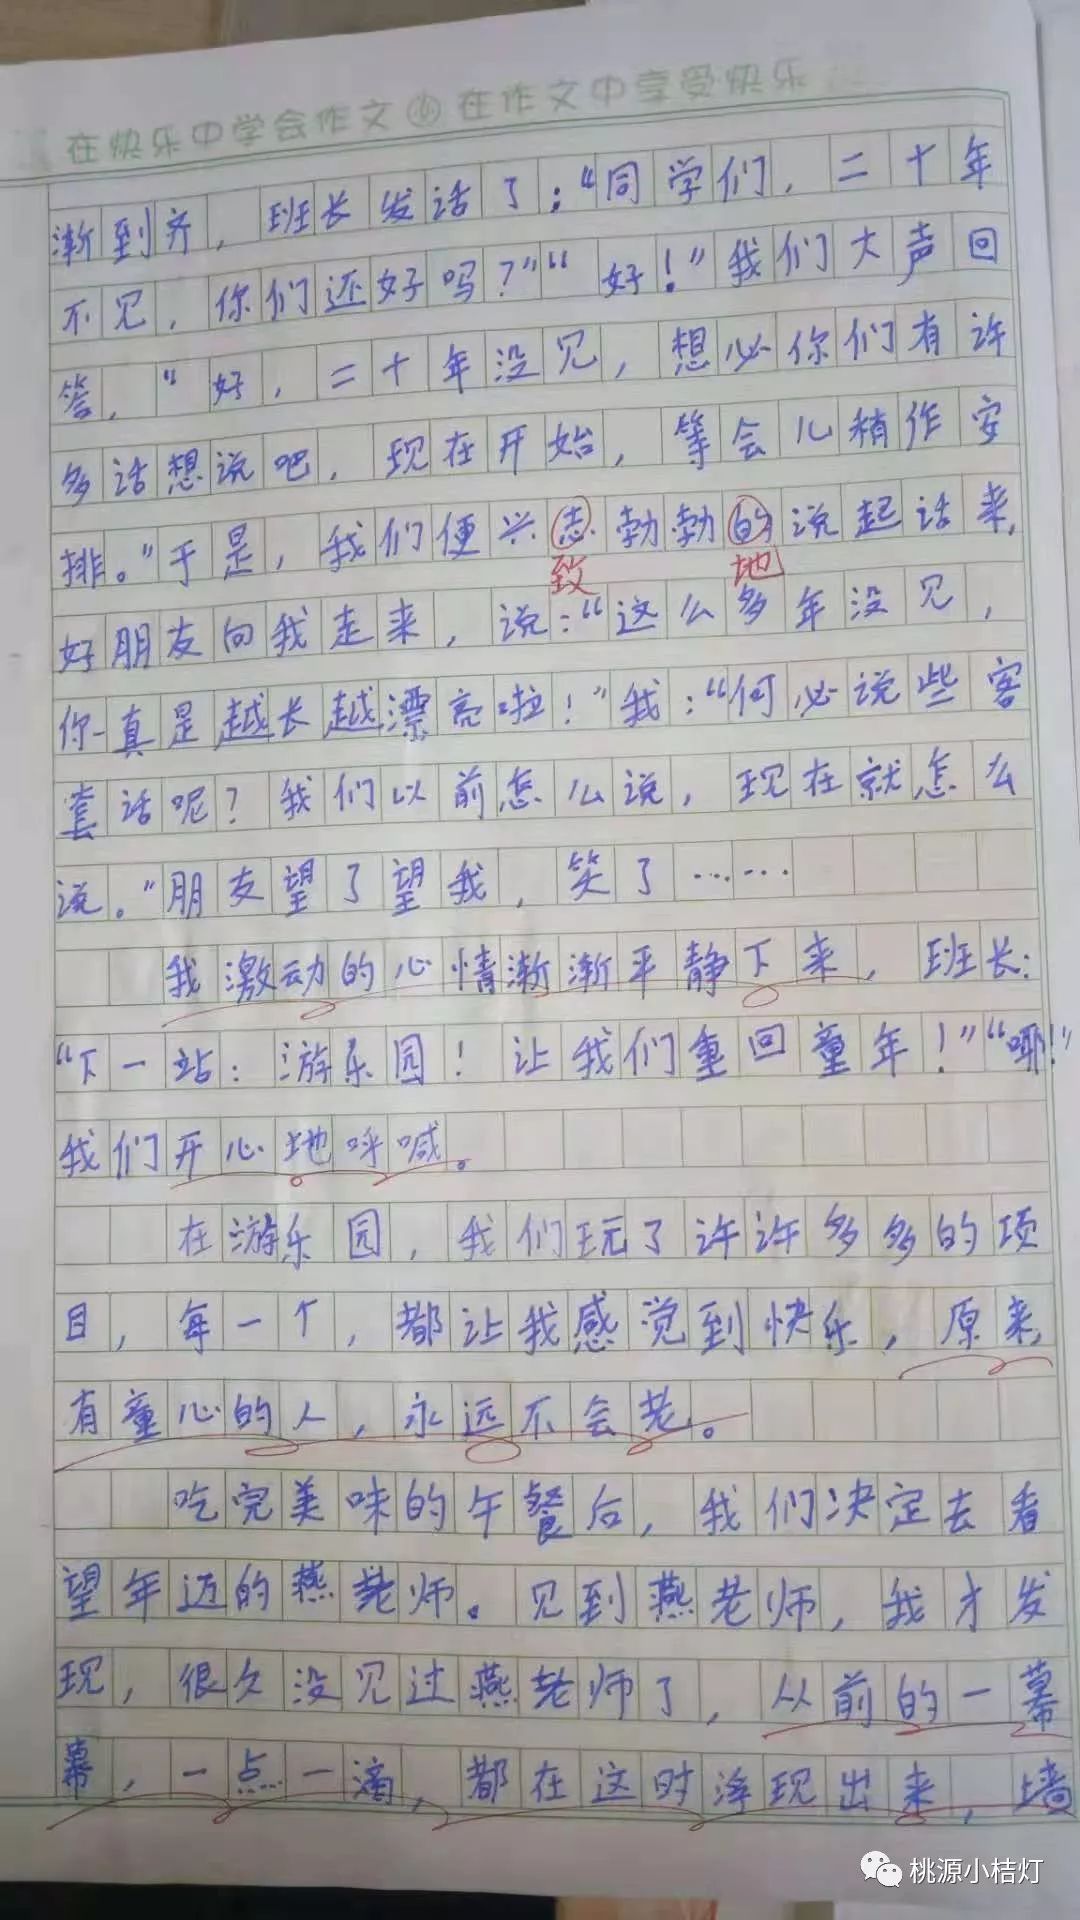 在快乐中学会作文 在作文中享受快乐
渐到齐，班长发话了：“同学们，二十年
不见，你们还好吗？”“好！”我们大声回
答，“好，二十年没见，想必你们有许
多话想说吧，现在开始，等会儿稍作安
排。”于是，我们便兴志勃勃的说起话来，
致 地
好朋友向我走来，说：“这么多年没见，
你真是越长越漂亮啦！”我：“何必说些客
套话呢？我们以前怎么说，现在就怎么
说。”朋友望了望我，笑了……
我激动的心情渐渐平静下来，班长：
“下一站：游乐园！让我们重回童年！”“耶！”
我们开心地呼喊。
在游乐园，我们玩了许许多多的项
目，每一个，都让我感觉到快乐，原来，
有童心的人，永远不会老。
吃完美味的午餐后，我们决定去看
望年迈的燕老师。见到燕老师，我才发
现，很久没见过燕老师了，从前的一幕
幕，一点一滴，都在这时浮现出来，墙
桃源小桔灯